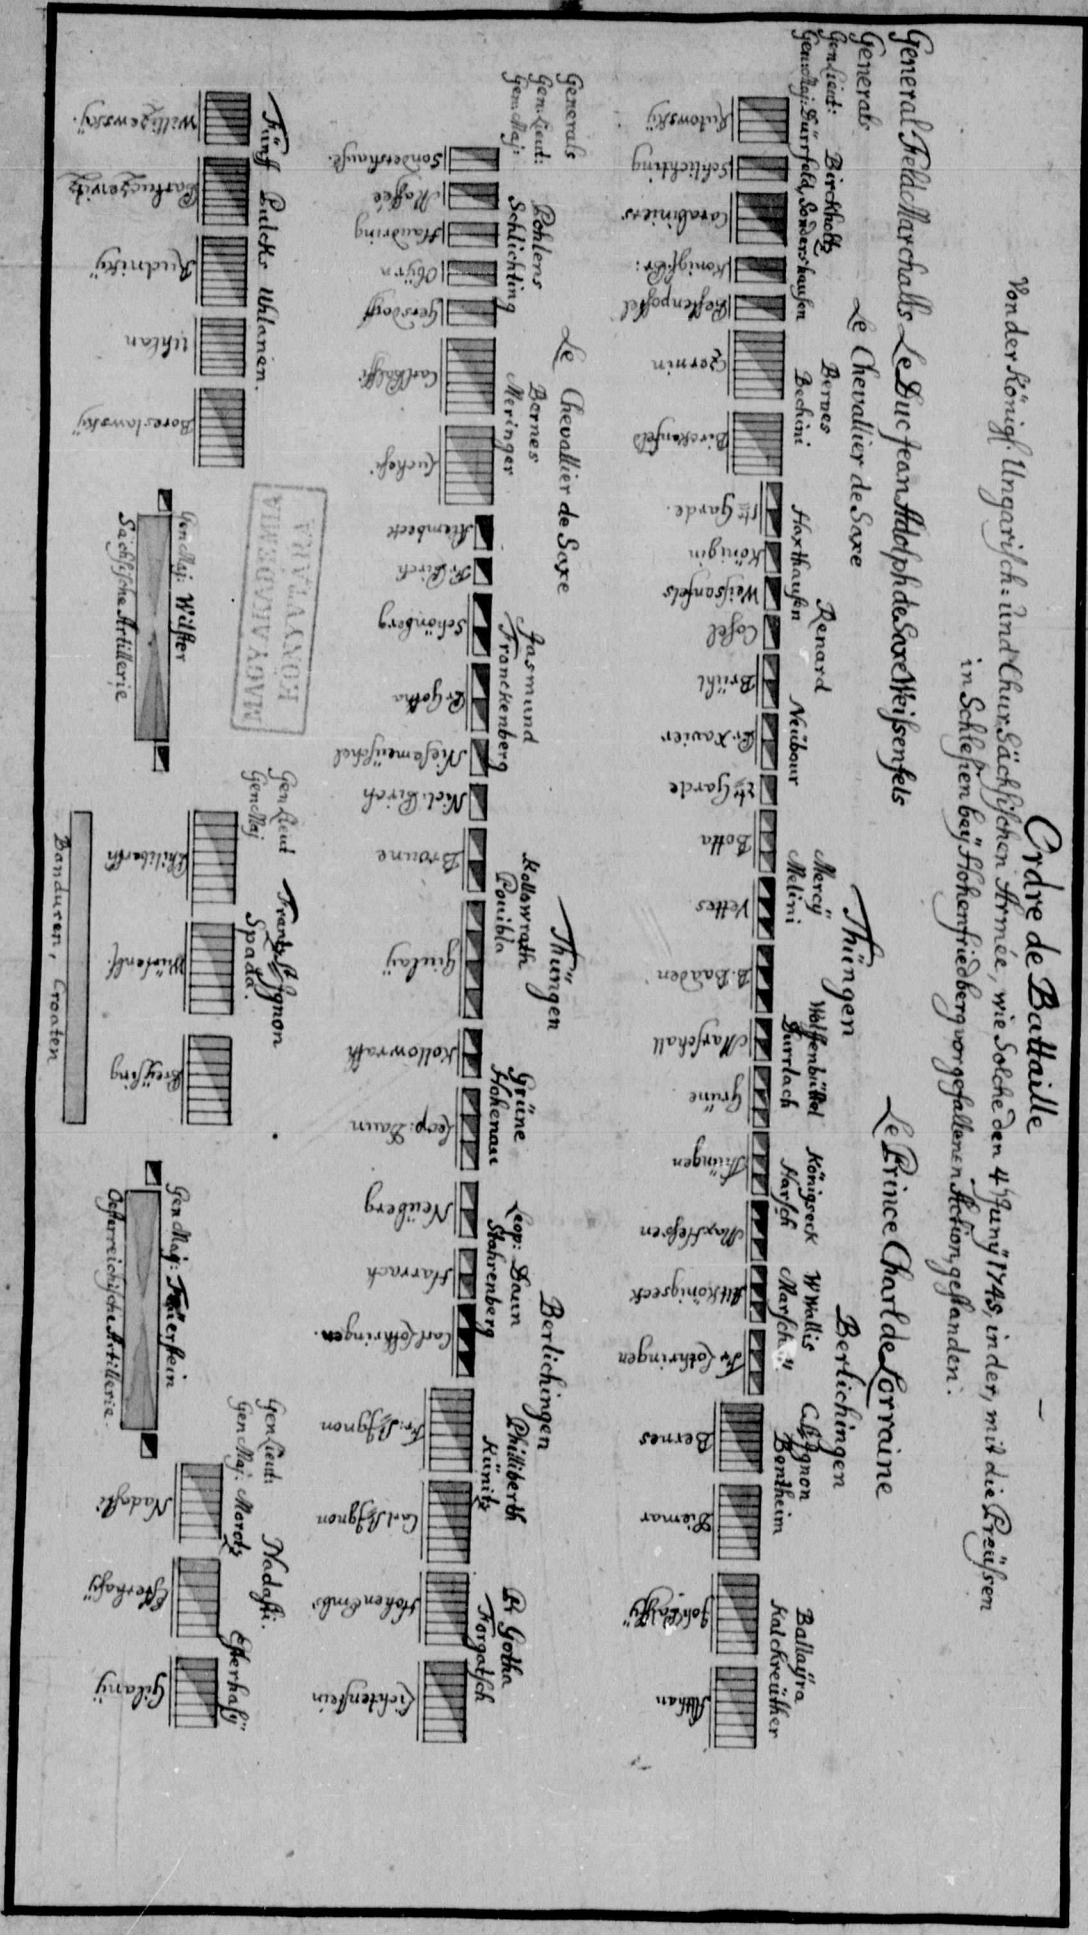 Ordre de Battaille
Von der Königl. Ungarisch: und Chur Sächsischen Armée, wie Solche den 4ten Juny 1745, in der, mit die Preüssen
in Schlesien beÿ Hohenfriedberg vorgefallenen Action, gestanden.
General Feld Marchalls Le Duc Jean Adolph de Saxe Weissenfels Le Prince Charl de Lorraine
Generals Le Chevallier de Saxe Thüngen Berlichingen
Gen Lieut: Birckholtz Bernes Renard Mercÿ Wolffenbüttel Königseck W Wallis C. St Ignon Ballaÿra
Gen: Maj: Dürrfeld, Sondershausen Bechini Haxthausen Neübour Melini Durrlach Harsch Marsch Bentheim Kalckreüther
Rutowskÿ
Schlichting
Carabiniers
Königl: Pr:
Czernin
Birckenfeld
1te Garde.
Königin
Weissenfels
Cosel
Brühl
Pr. Xavier
2te Garde
Botta
Vettes
B. Baaden
Marschall
Grüne
Thüngen
Max Hessen
Alt Königseck
Fr Lothringen
Bernes
Diemar
Joh: Palffÿ
Althan
Generals Le Chevallier de Saxe Thüngen Berlichingen
Gen Lieut: Pohlens Bernes Jasmund Kollowrath Grüne Leop: Daun Philliberth Pr Gotha
Gen Maj: Schlichting Meringer Franckenberg Pouibla Hohenau Stahrenberg Künitz Forgatsch
Sondershause.
Maffée
Haudring
Obÿrn
Gersdorff
Carl Palffi:
Luchesi
Allembeck
Fr. Pirch
Schönberg
Pr Gotha
Niesemeüschel
Nicl. Pirch
Broune
Giulaÿ
Kollowrath
Leop: Daun
Neüberg
Harrach
Carl Lothringen.
Fr: St Ignon
Carl St Ignon
Hohen Embs
Lichtenstein
Fünff Pulcks Uhlanen.
Rudnitzÿ
Uhlan
Boreslawskÿ
Gen Maj: Wilster
Sächsische Artillerie
MAGY. AKADEMIA
KÖNYVTÁRA
Gen Lieut Frantz St Ignon
Gen Maj Spada.
Philiberth
Würtenb.
Preÿsing
Banduren, Croaten
Gen Maj: Feüerstein
Oesterreichische Artillerie.
Gen Lieut: Nadasti.
Gen Maj: Morotz Esterhasÿ
Nadasti
Esterhasÿ
Gilanÿ